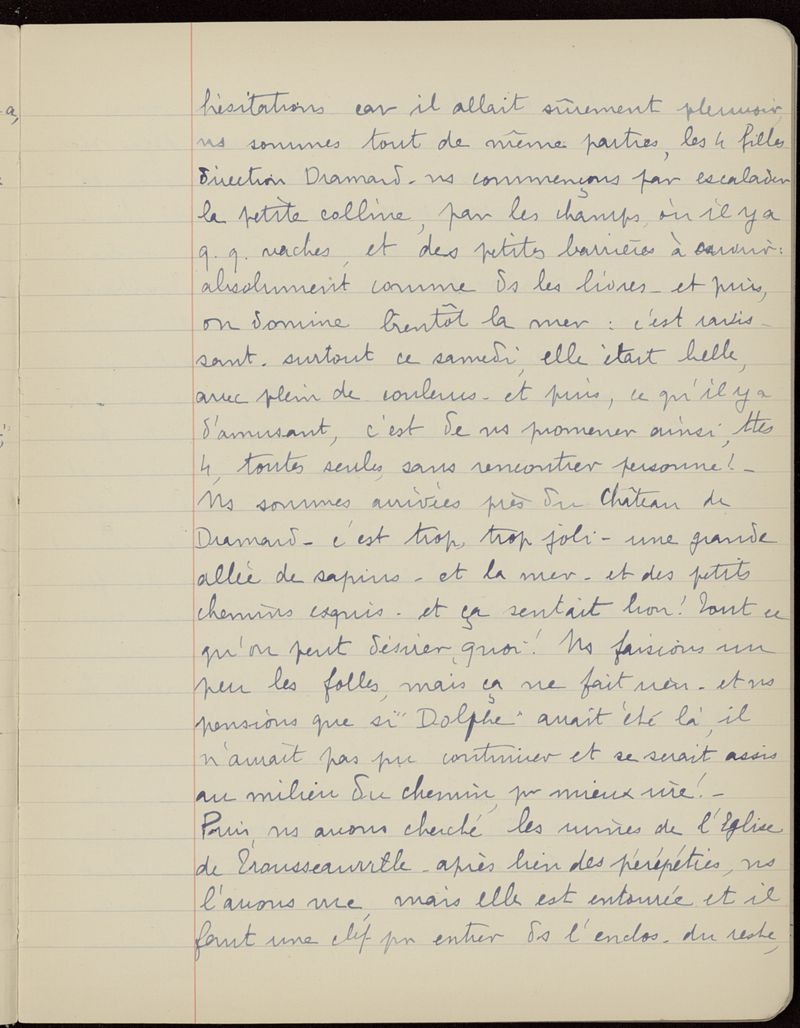 a,
hésitations car il allait sûrement pleuvoir,
ns sommes tout de même parties, les 4 filles
direction Dramard - ns commençons par escalader
la petite colline, par les champs, où il y a
q. q. vaches, et des petites barrières à ouvrir :
absolument comme ds les livres - et puis,
on domine bientôt la mer : c'est ravis-
sant - surtout ce samedi, elle était belle,
avec plein de couleurs - et puis, ce qu'il y a
d'amusant, c'est de ns promener ainsi, ttes
4, toutes seules, sans rencontrer personne ! -
Ns sommes arrivées près du Château de
Dramard - c'est trop, trop joli - une grande
allée de sapins - et la mer - et des petits
chemins exquis - et ça sentait bon ! Tout ce
qu'on peut désirer, quoi ! Ns faisions un
peu les folles, mais ça ne fait rien - et ns
pensions que si "Dolphe" avait été là, il
n'aurait pas pu continuer et se serait assis
au milieu du chemin, pr mieux rire ! -
Puis, ns avons cherché les ruines de l'Eglise
de Trousseauville - après bien des péripéties, ns
l'avons vue, mais elle est entourée et il
faut une clef pr entrer ds l'enclos - du reste,